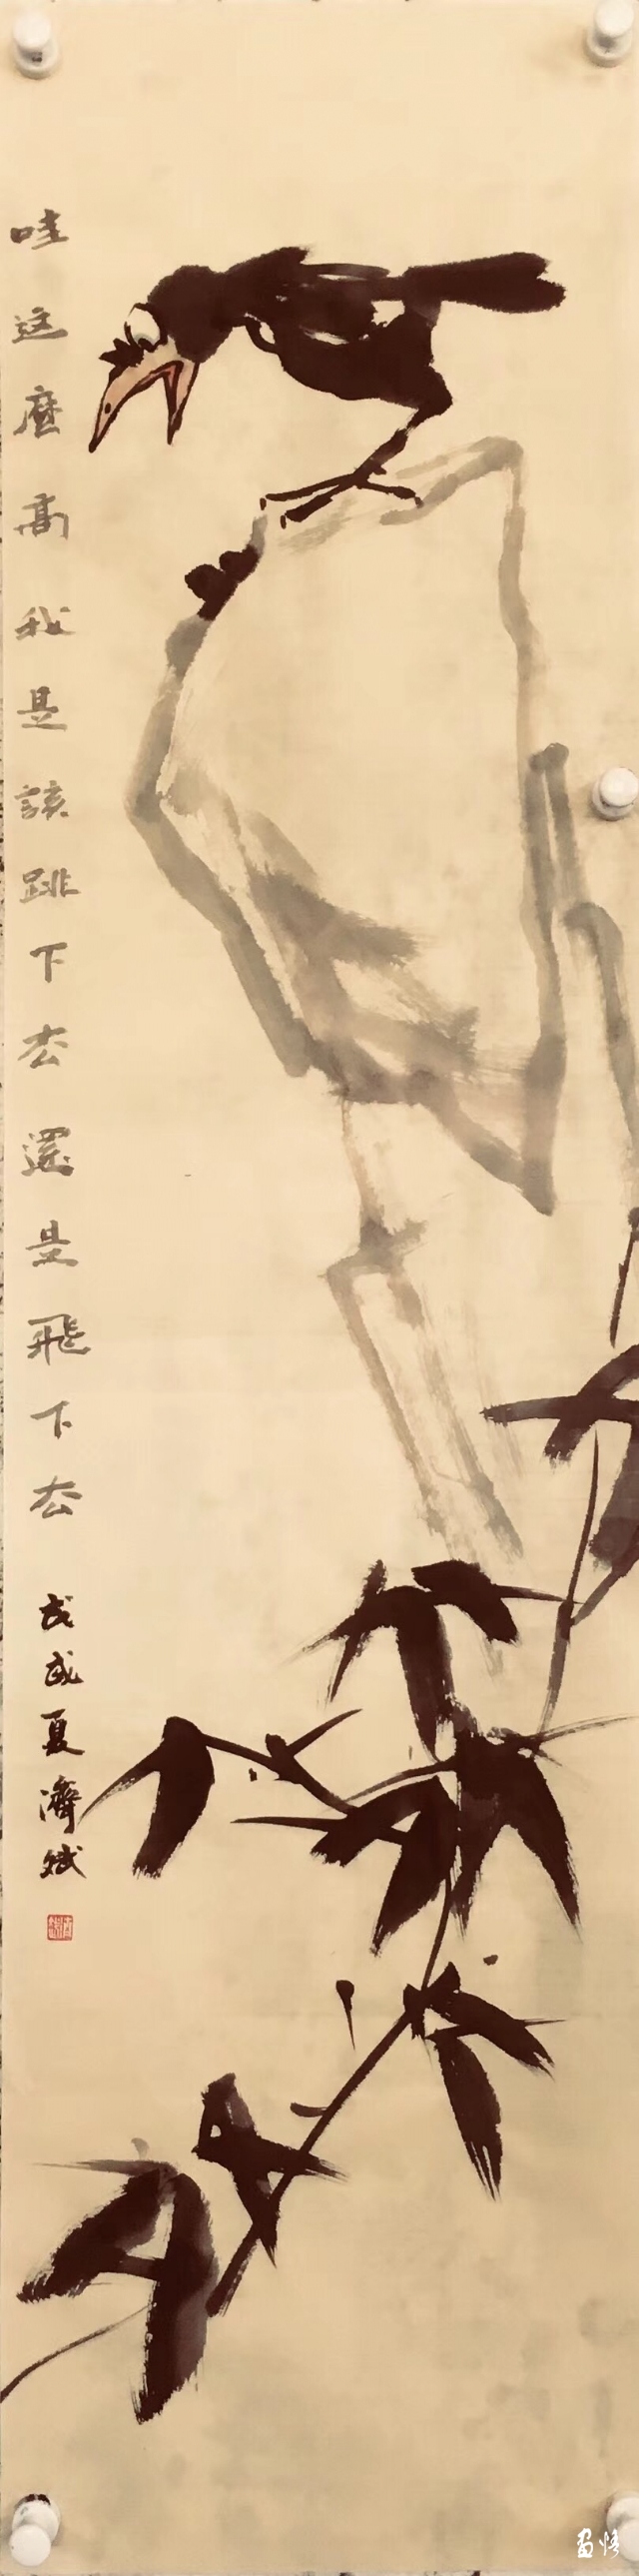 哇这麼高我是該跳下去還是飛下去
戊戌夏濟斌
畫悟